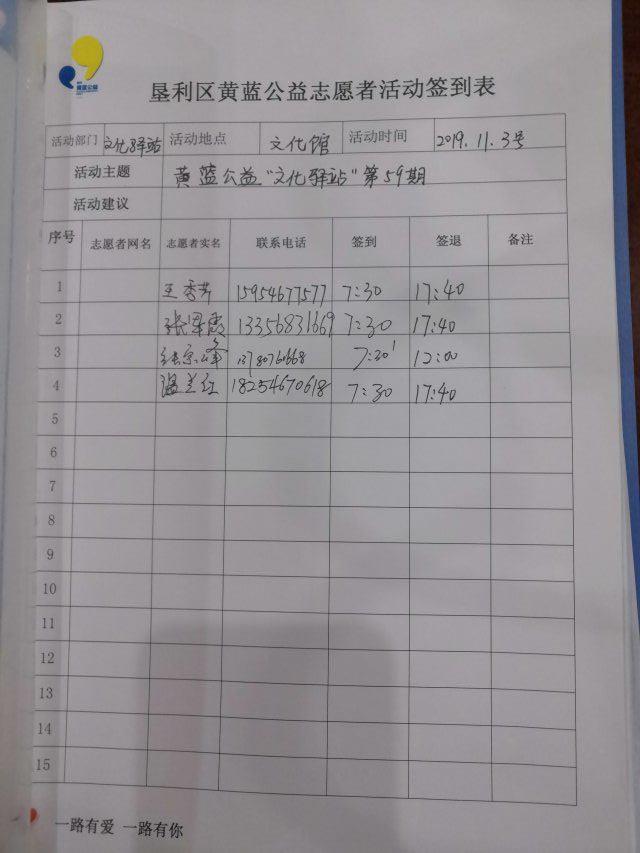 黄蓝公益
垦利区黄蓝公益志愿者活动签到表
活动部门 文化驿站 活动地点 文化馆 活动时间 2019.11.3号
活动主题 黄蓝公益"文化驿站"第59期
活动建议
序号 志愿者网名 志愿者实名 联系电话 签到 签退 备注
1 王秀芹 15954677577 7:30 17:40
2 张翠霞 13356831669 7:30 17:40
3 13780760668 7:30 12:00
4 温兰红 18254670618 7:30 17:40
5
6
7
8
9
10
11
12
13
14
15
一路有爱 一路有你